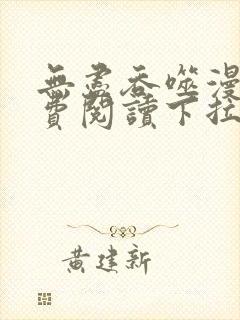 無盡吞噬漫
費閱讀下拉
黃建新